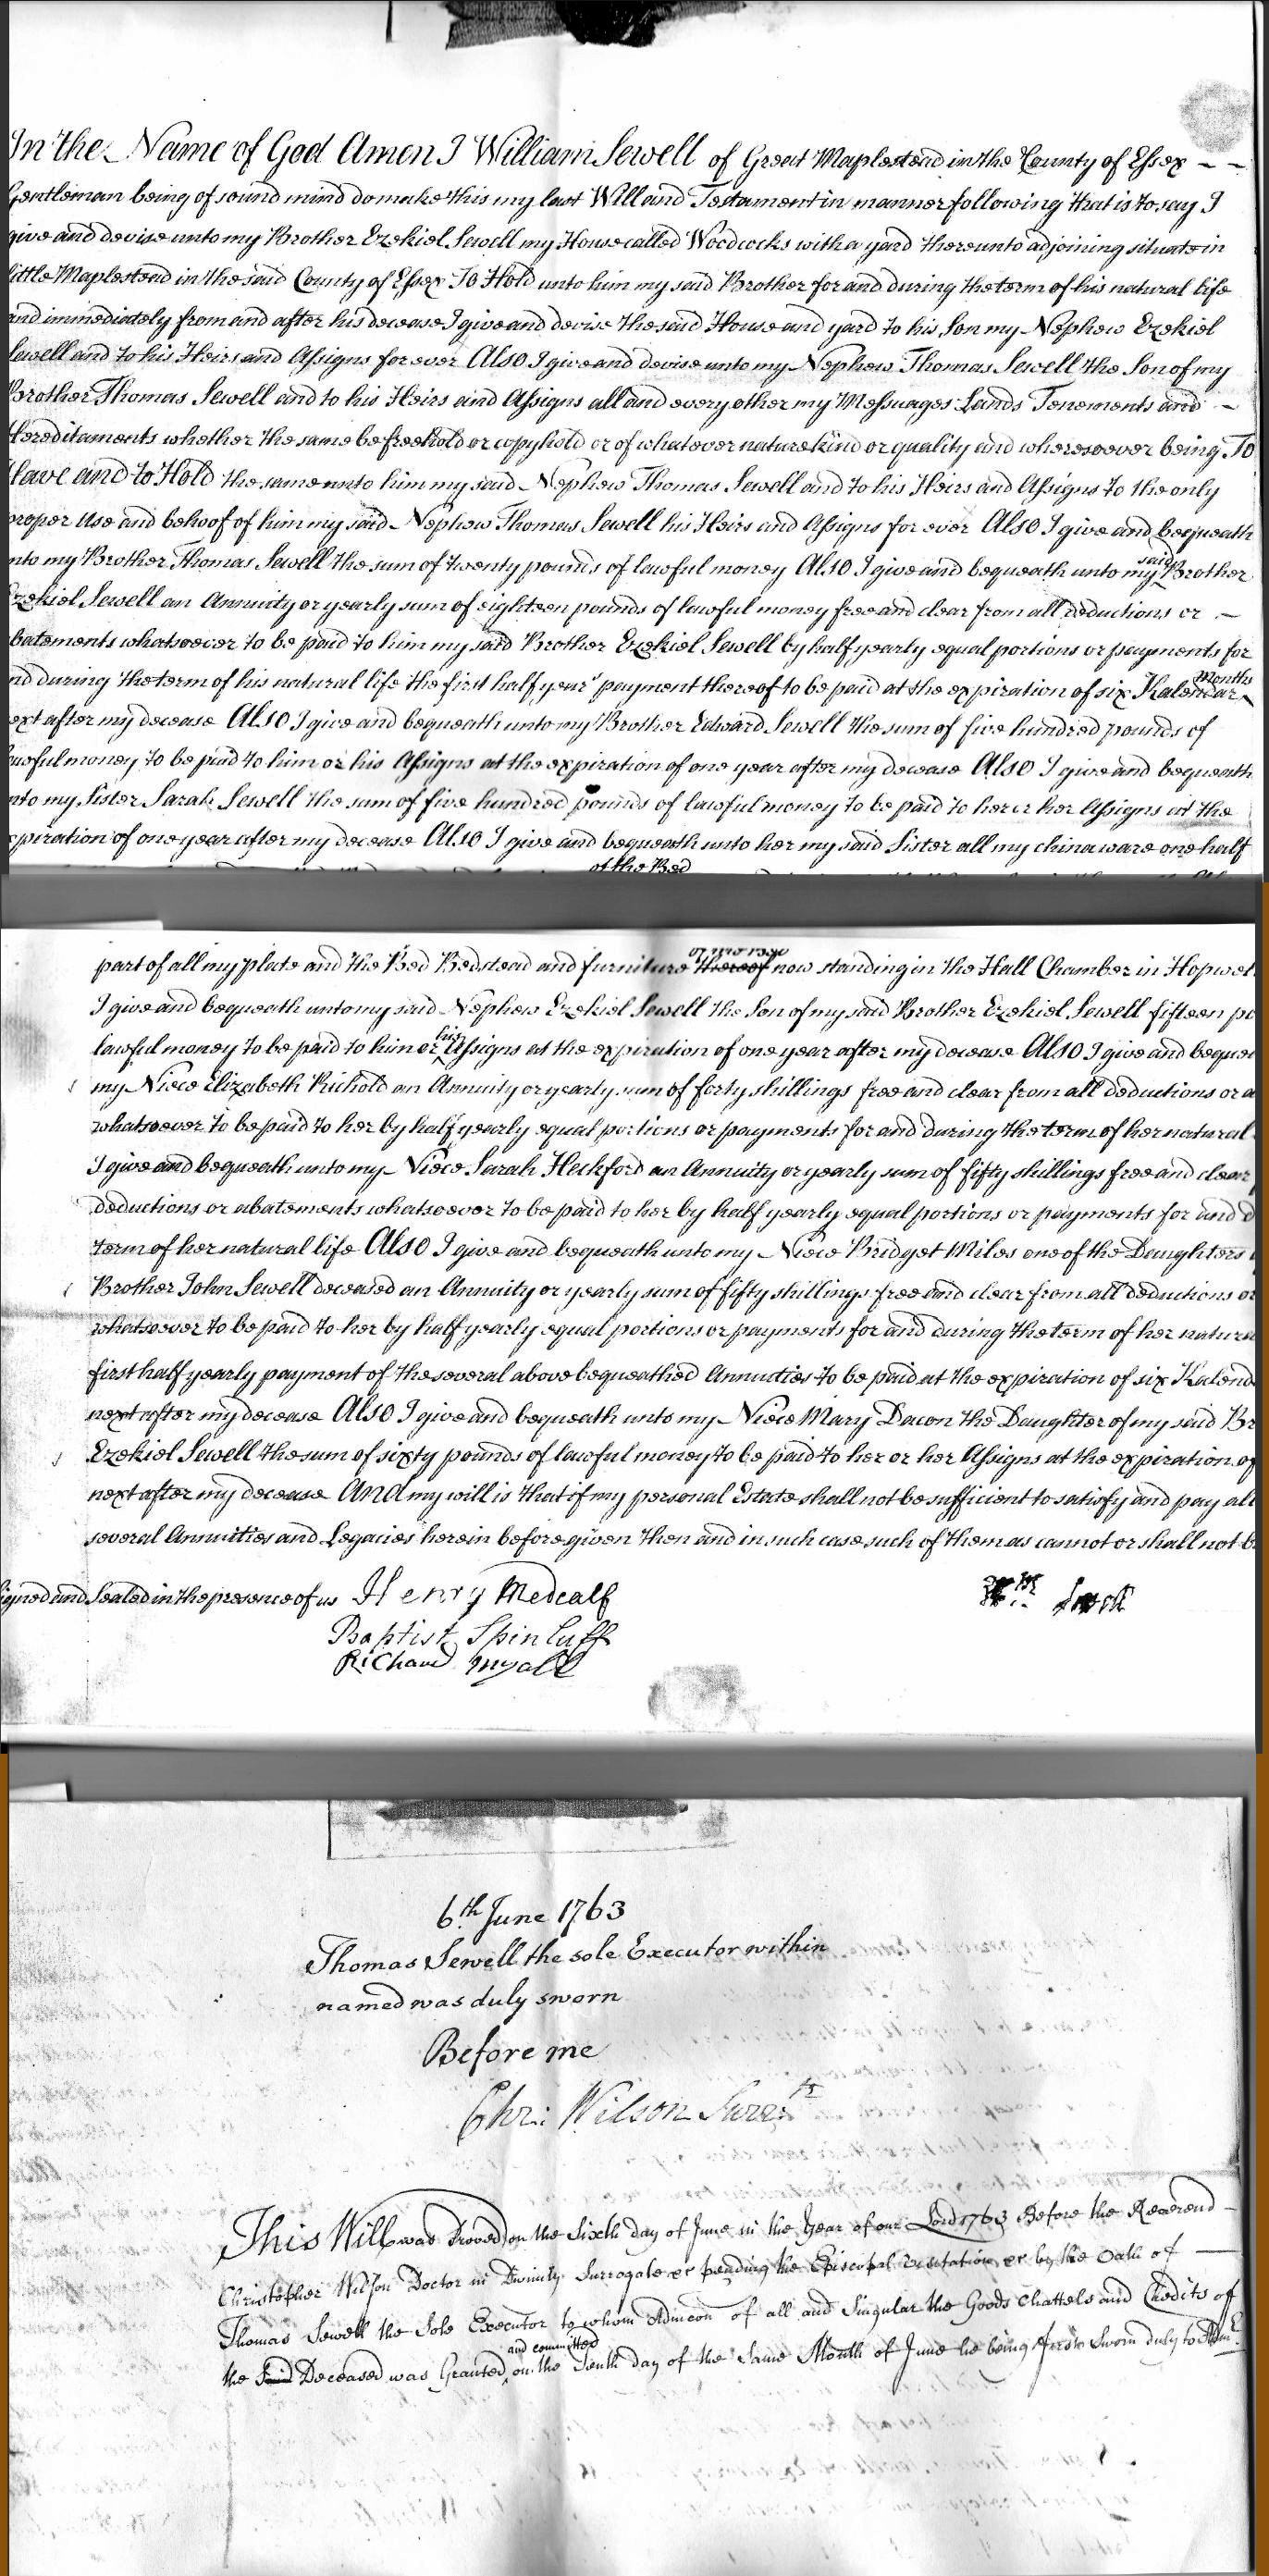 In the Name of God Amen I William Sewell of Great Maplestead in the County of Essex - -
Gentleman being of sound mind do make this my last Will and Testament in manner following that is to say I
give and devise unto my Brother Ezekiel Sewell my House called Woodcocks with a yard thereunto adjoining situate in
little Maplestead in the said County of Essex To Hold unto him my said Brother for and during the term of his natural life
and immediately from and after his decease I give and devise the said House and yard to his Son my Nephew Ezekiel
Sewell and to his Heirs and Assigns for ever Also I give and devise unto my Nephew Thomas Sewell the Son of my
Brother Thomas Sewell and to his Heirs and Assigns all and every other my Messuages Lands Tenements and -
Hereditaments whether the same be freehold or copyhold or of whatever nature kind or quality and wheresoever being To
Have and to Hold the same unto him my said Nephew Thomas Sewell and to his Heirs and Assigns to the only
proper use and behoof of him my said Nephew Thomas Sewell his Heirs and Assigns for ever Also I give and bequeath
nto my Brother Thomas Sewell the sum of twenty pounds of lawful money Also I give and bequeath unto my said Brother
Ezekiel Sewell an Annuity or yearly sum of eighteen pounds of lawful money free and clear from all deductions or -
batements whatsoever to be paid to him my said Brother Ezekiel Sewell by half yearly equal portions or payments for
nd during the term of his natural life the first half years payment thereof to be paid at the expiration of six Kalendar Months
ext after my decease Also I give and bequeath unto my Brother Edward Sewell the sum of five hundred pounds of
lawful money to be paid to him or his Assigns at the expiration of one year after my decease Also I give and bequeath
nto my Sister Sarah Sewell the sum of five hundred pounds of lawful money to be paid to her or her Assigns at the
xpiration of one year after my decease Also I give and bequeath unto her my said Sister all my china ware one half
of the Bed
part of all my plate and the Bed Bedstead and furniture thereof now standing in the Hall Chamber in Hopwel
I give and bequeath unto my said Nephew Ezekiel Sewell the Son of my said Brother Ezekiel Sewell fifteen po
lawful money to be paid to him or his Assigns at the expiration of one year after my decease Also I give and beque
my Niece Elizabeth Richold an Annuity or yearly sum of forty shillings free and clear from all deductions or a
whatsoever to be paid to her by half yearly equal portions or payments for and during the term of her natural
I give and bequeath unto my Niece Sarah Heckford an Annuity or yearly sum of fifty shillings free and clear
deductions or abatements whatsoever to be paid to her by half yearly equal portions or payments for and d
term of her natural life Also I give and bequeath unto my Niece Bridget Miles one of the Daughters
Brother John Sewell deceased an Annuity or yearly sum of fifty shillings free and clear from all deductions or
whatsoever to be paid to her by half yearly equal portions or payments for and during the term of her natura
first half yearly payment of the several above bequeathed Annuities to be paid at the expiration of six Kalend
next after my decease Also I give and bequeath unto my Niece Mary Dacon the Daughter of my said Br
Ezekiel Sewell the sum of sixty pounds of lawful money to be paid to her or her Assigns at the expiration of
next after my decease And my will is that if my personal Estate shall not be sufficient to satisfy and pay all
several Annuities and Legacies herein before given then and in such case such of them as cannot or shall not b
Signed and Sealed in the presence of us Henry Medcalf Wm Sewell
Baptist Spinluff
Richard Myall
6th June 1763
Thomas Sewell the sole Executor within
named was duly sworn
Before me
Chr: Wilson Surr
This Will was Proved on the Sixth day of June in the Year of our Lord 1763 Before the Reverend -
Christopher Wilson Doctor in Divinity Surrogate &c pending the Episcopal Visitation &c by the Oath of -
Thomas Sewell the Sole Executor to whom Admcon of all and Singular the Goods Chattels and Credits of
the Said Deceased was Granted and committed on the Tenth day of the Same Month of June he being first Sworn duly to Adm